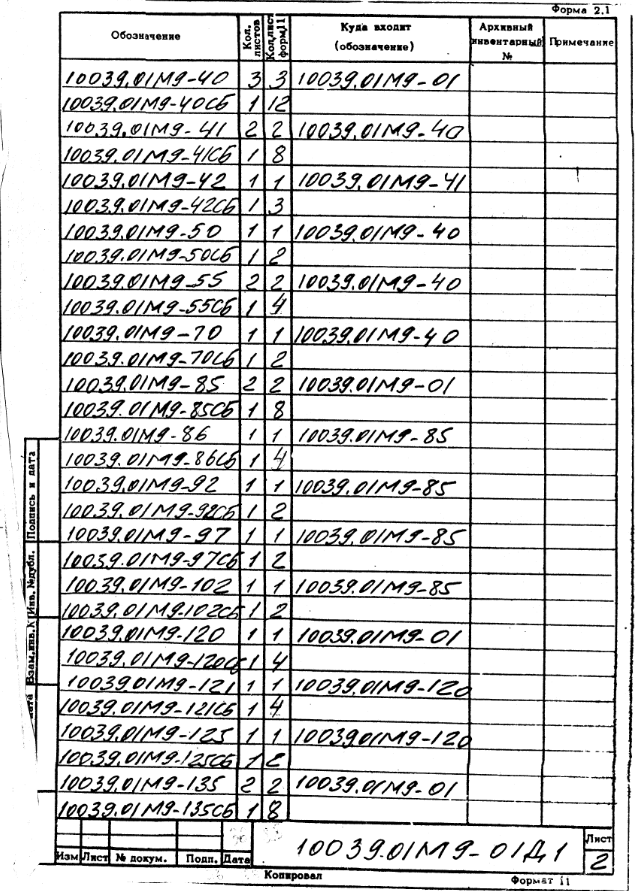 Форма 2.1
Обозначение Кол. листов Кол.лист форм.11 Куда входит (обозначение) Архивный инвентарный № Примечание
10039.01М9-40 3 3 10039.01М9-01
10039.01М9-40СБ 1 12
10039.01М9-41 2 2 10039.01М9-40
10039.01М9-41СБ 1 8
10039.01М9-42 1 1 10039.01М9-41
10039.01М9-42СБ 1 3
10039.01М9-50 1 1 10039.01М9-40
10039.01М9-50СБ 1 2
10039.01М9-55 2 2 10039.01М9-40
10039.01М9-55СБ 1 4
10039.01М9-70 1 1 10039.01М9-40
10039.01М9-70СБ 1 2
10039.01М9-85 2 2 10039.01М9-01
10039.01М9-85СБ 1 8
10039.01М9-86 1 1 10039.01М9-85
10039.01М9-86СБ 1 4
10039.01М9-92 1 1 10039.01М9-85
10039.01М9-92СБ 1 2
10039.01М9-97 1 1 10039.01М9-85
10039.01М9-97СБ 1 2
10039.01М9-102 1 1 10039.01М9-85
10039.01М9-102СБ 1 2
10039.01М9-120 1 1 10039.01М9-01
10039.01М9-120СБ 1 4
10039.01М9-121 1 1 10039.01М9-120
10039.01М9-121СБ 1 4
10039.01М9-125 1 1 10039.01М9-120
10039.01М9-125СБ 1 2
10039.01М9-135 2 2 10039.01М9-01
10039.01М9-135СБ 1 8
Подпись и дата
Инв. №дубл.
Взам.инв.№
дата
Изм Лист № докум. Подп. Дата
10039.01М9-01Д1
Лист
2
Копировал
Формат 11